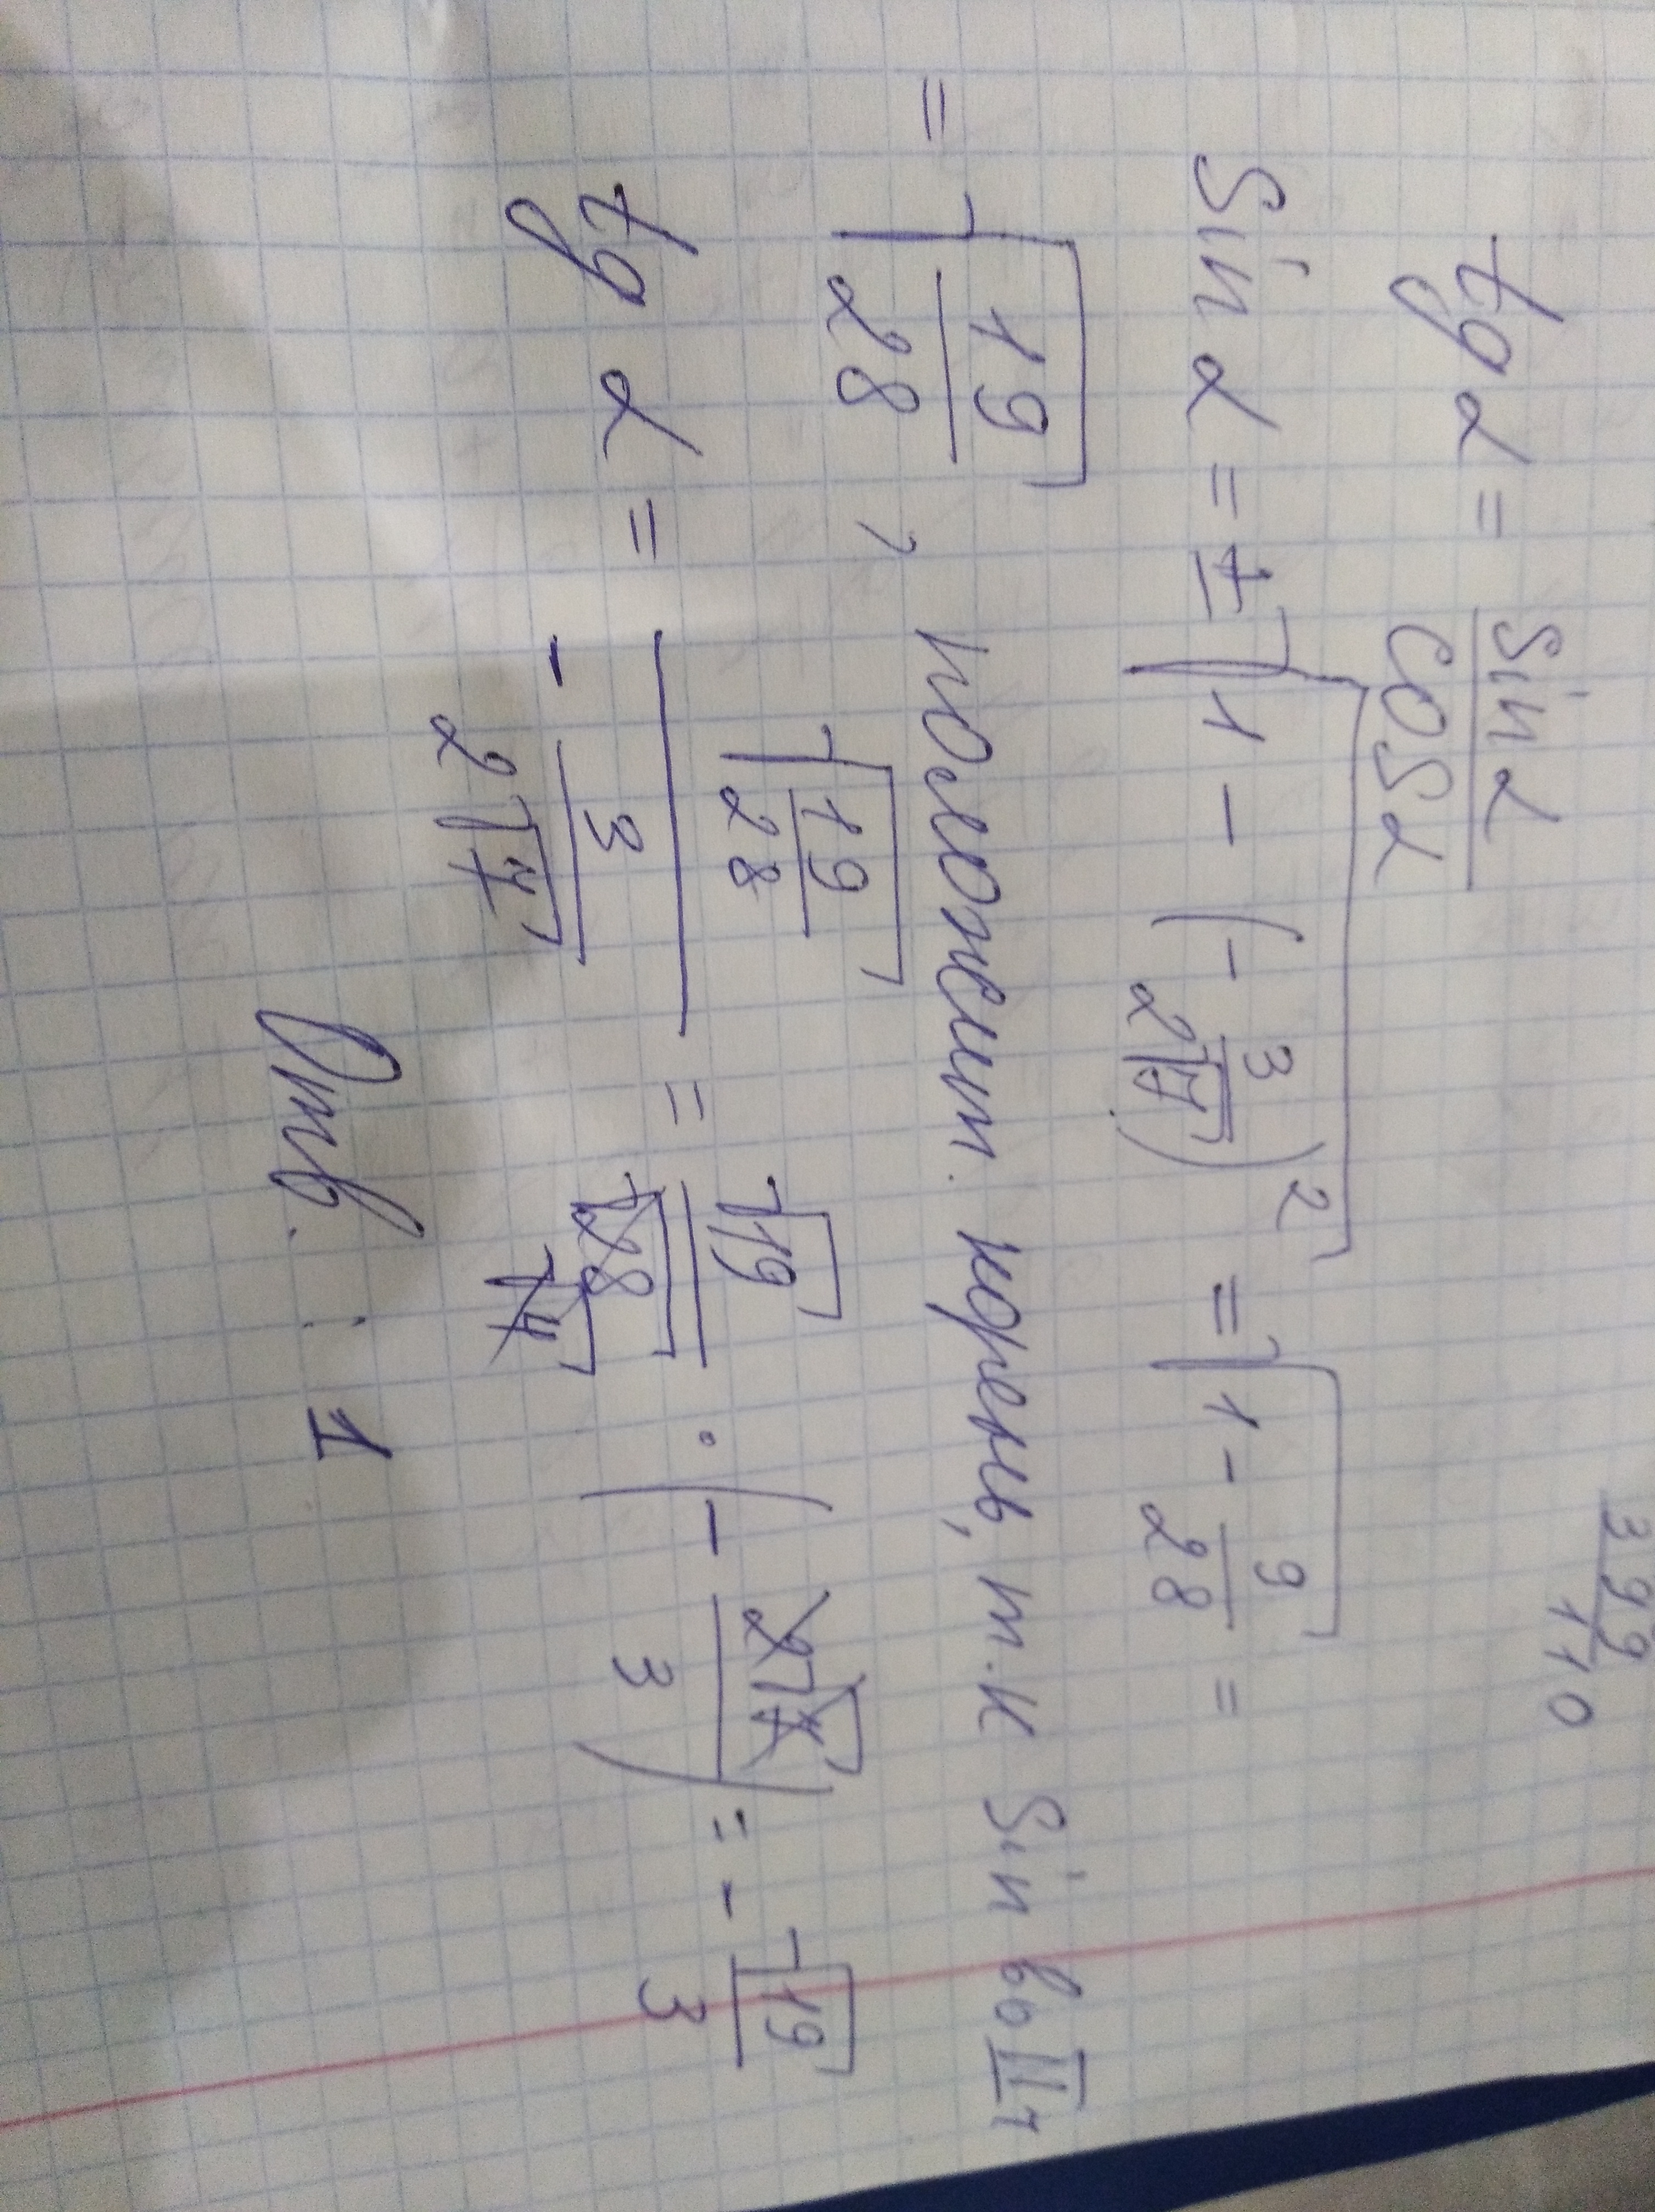 399
110
tg α = sin α / cos α
Sin α = ±√(1 - (-3/(2√7))²) = √(1 - 9/28) =
= √(19/28) , положит. корень, т.к Sin во II ч
tg α = √(19/28) / (-3/(2√7)) = √19/√28 · (-2√7/3) = -√19/3
√4
Отв. : 1